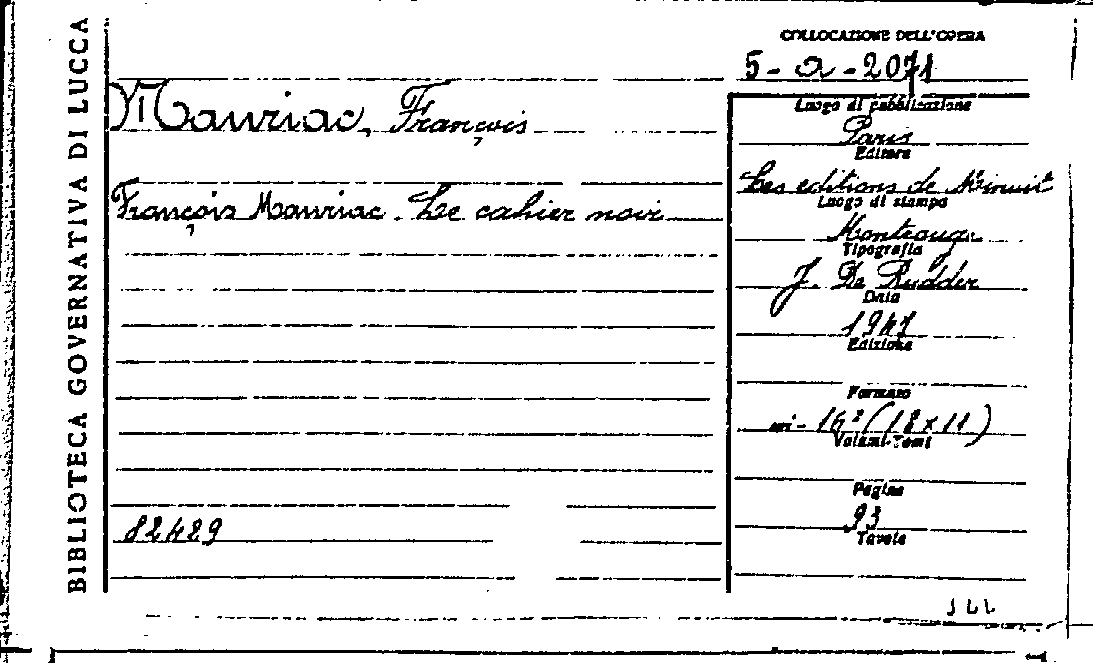 BIBLIOTECA GOVERNATIVA DI LUCCA
COLLOCAZIONE DELL'OPERA
5-a-2071
Mauriac, François
François Mauriac. Le cahier noir
82489
Luogo di pubblicazione
Paris
Editore
Les editions de Minuit
Luogo di stampa
Montrouge
Tipografia
J. De Rudder
Data
1947
Edizione
Formato
in-16º (18x11)
Volumi-Tomi
Pagine
93
Tavole